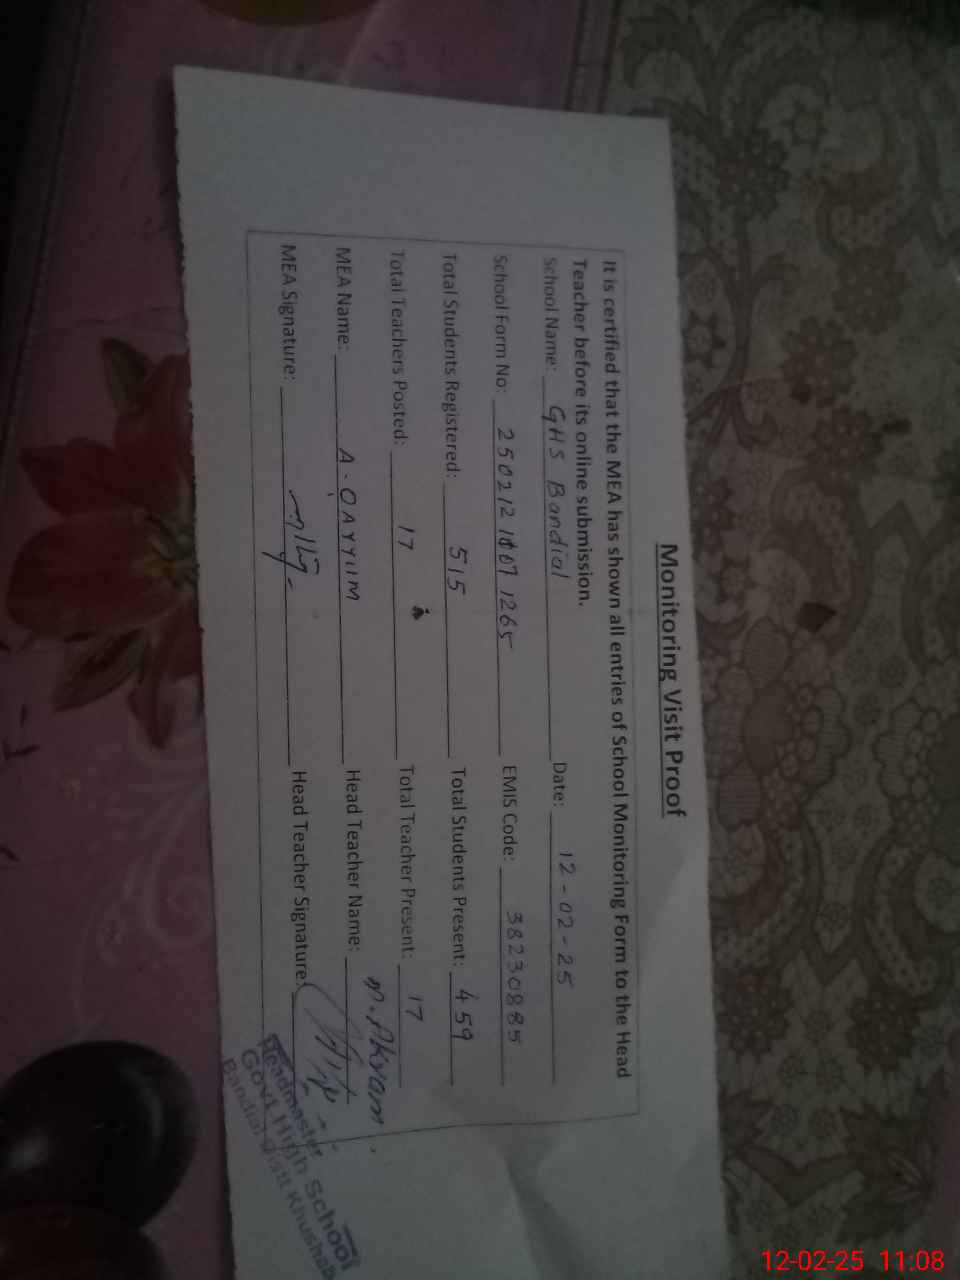 Monitoring Visit Proof
It is certified that the MEA has shown all entries of School Monitoring Form to the Head
Teacher before its online submission.
School Name: GHS Bandial Date: 12-02-25
School Form No: EMIS Code: 38230885
Total Students Registered: 515 Total Students Present: 459
Total Teachers Posted: 17 Total Teacher Present: 17
MEA Name: A. QAYYUM Head Teacher Name: M. Akram
MEA Signature: Head Teacher Signature:
Headmaster
Govt High School
Bandial Distt Khushab
12-02-25 11:08